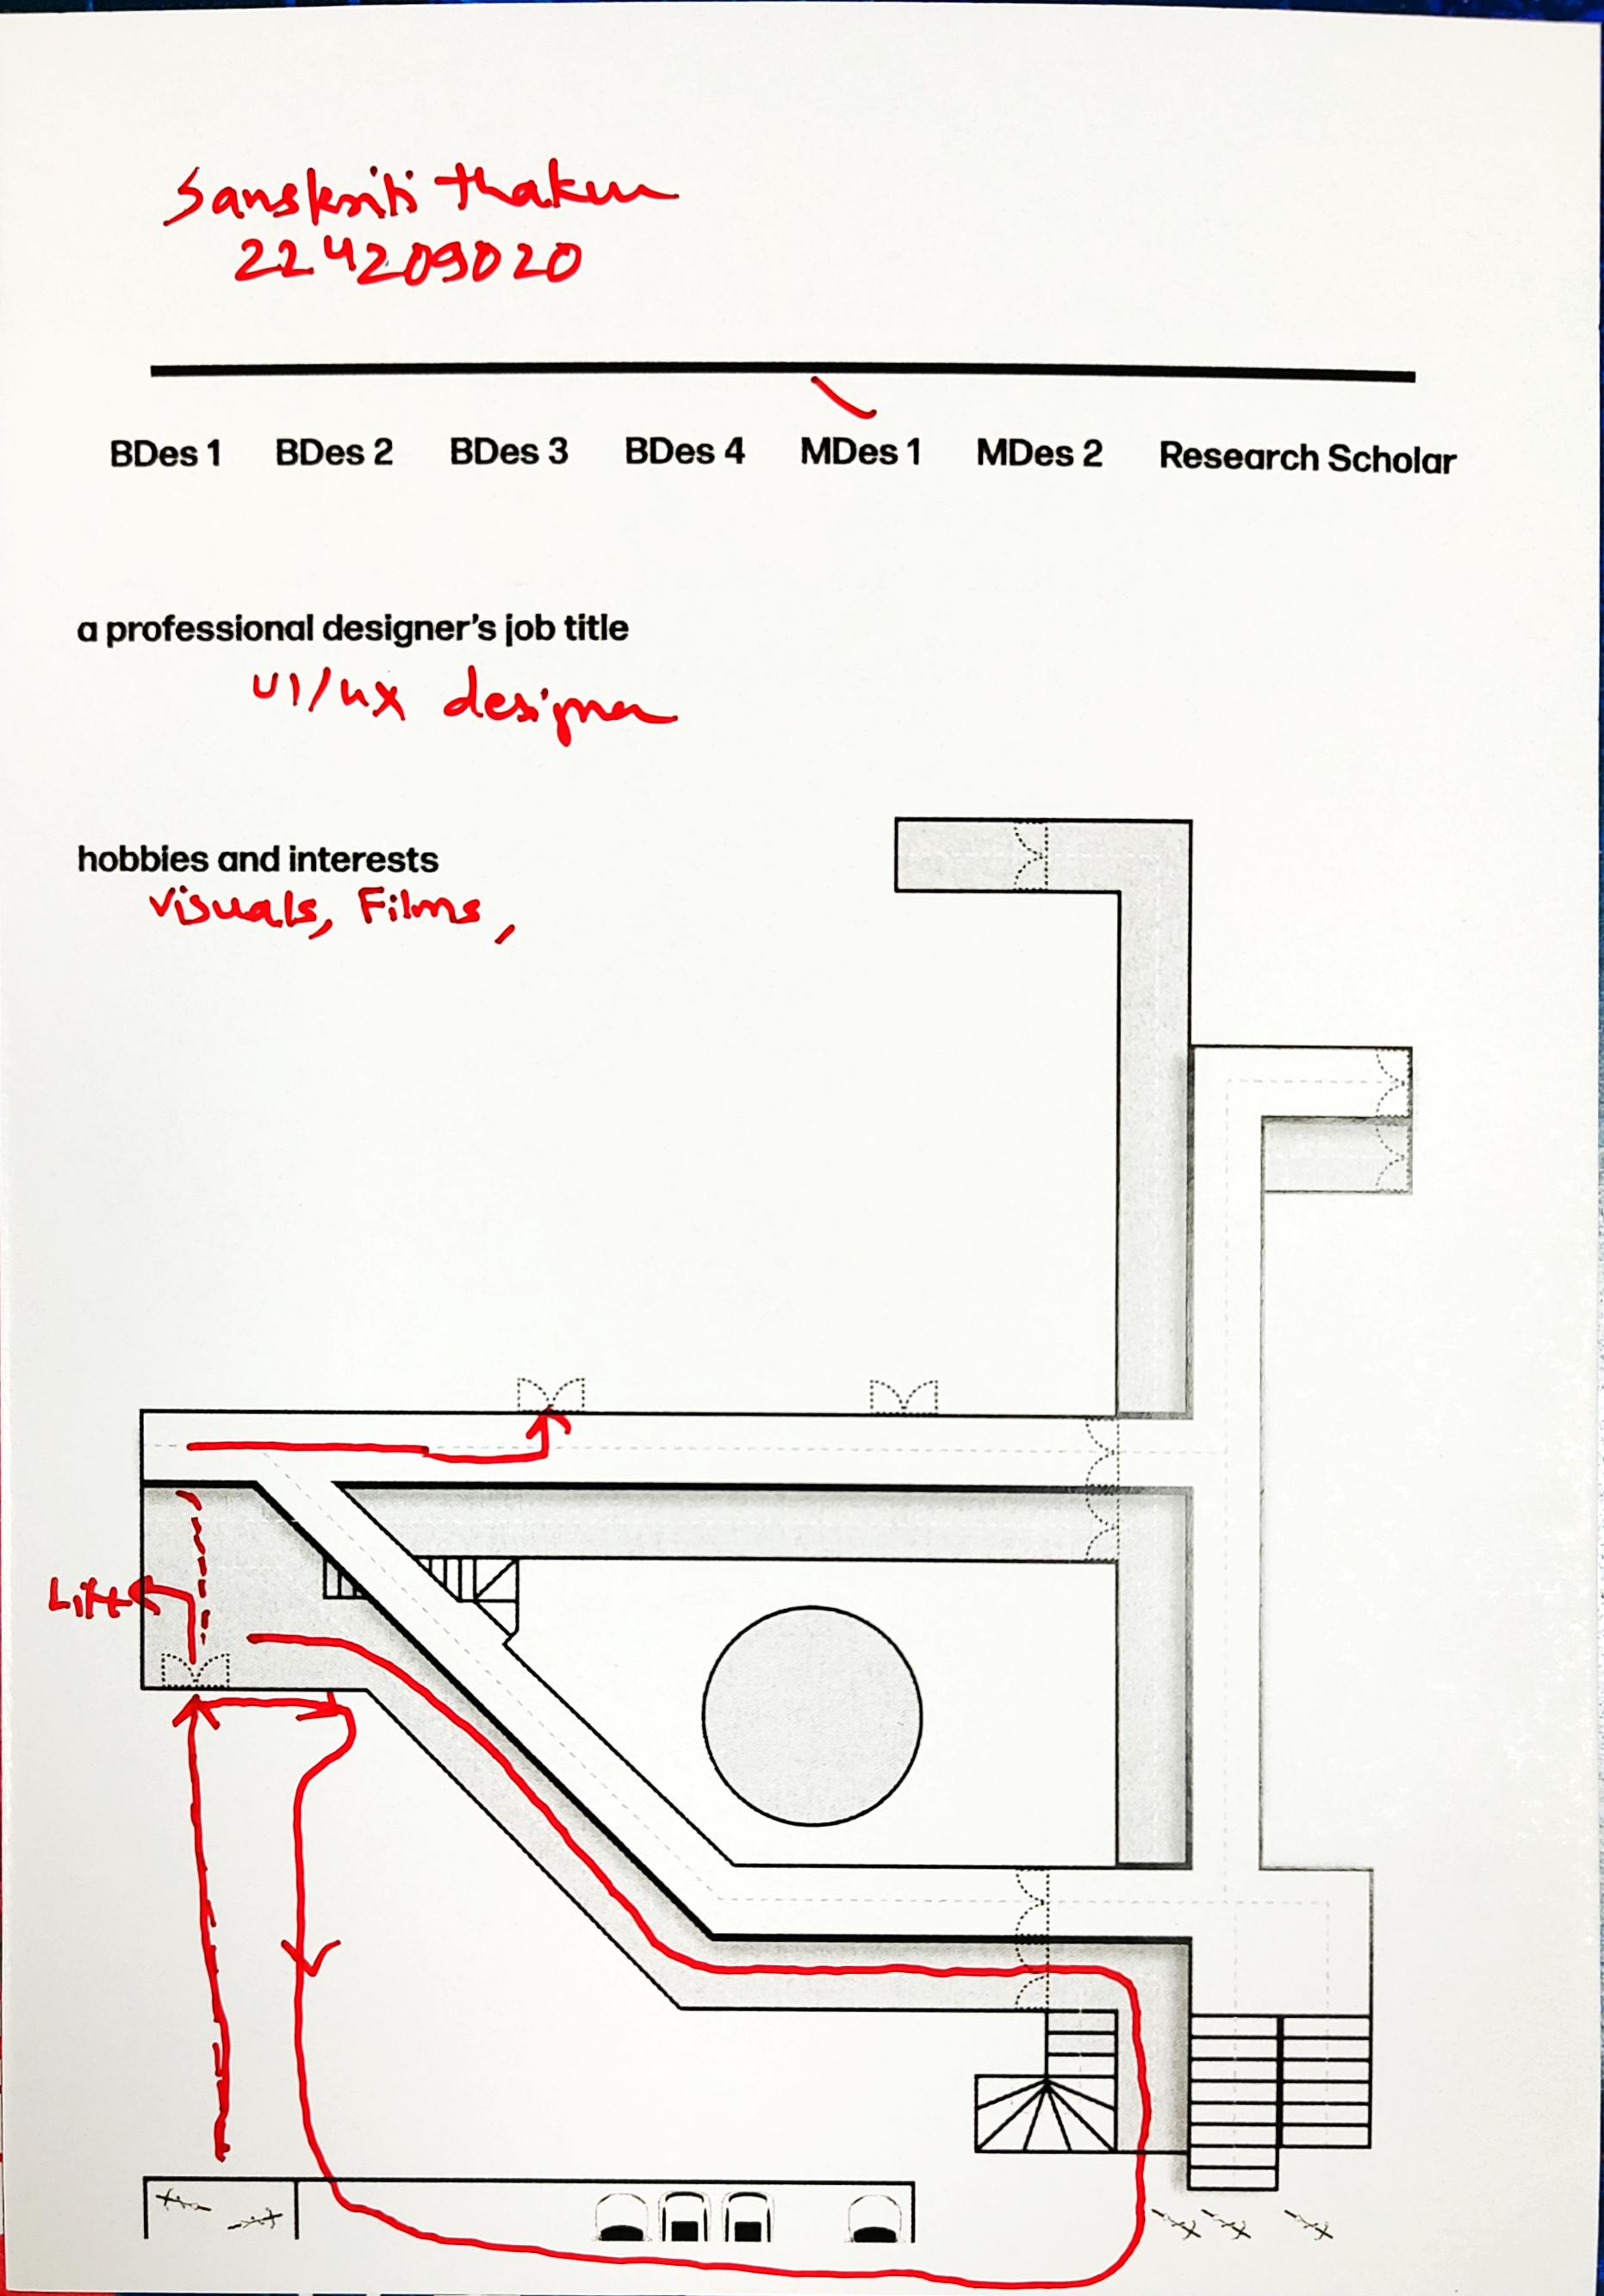 Sanskriti thakur
224209020
BDes 1 BDes 2 BDes 3 BDes 4 MDes 1 MDes 2 Research Scholar
a professional designer's job title
UI/ux designer
hobbies and interests
Visuals, Films,
Lift